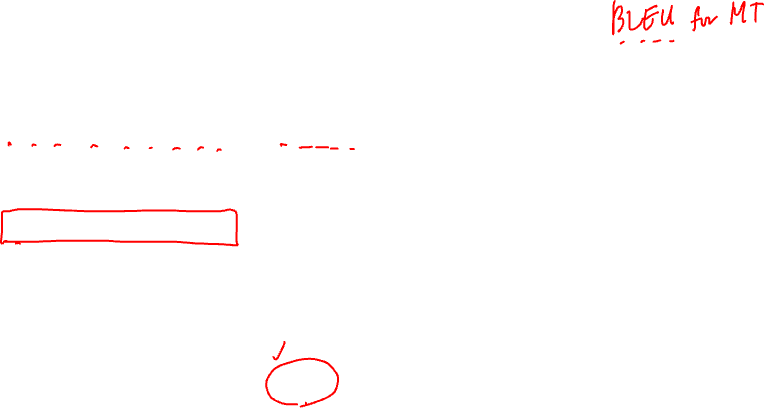 BLEU for MT